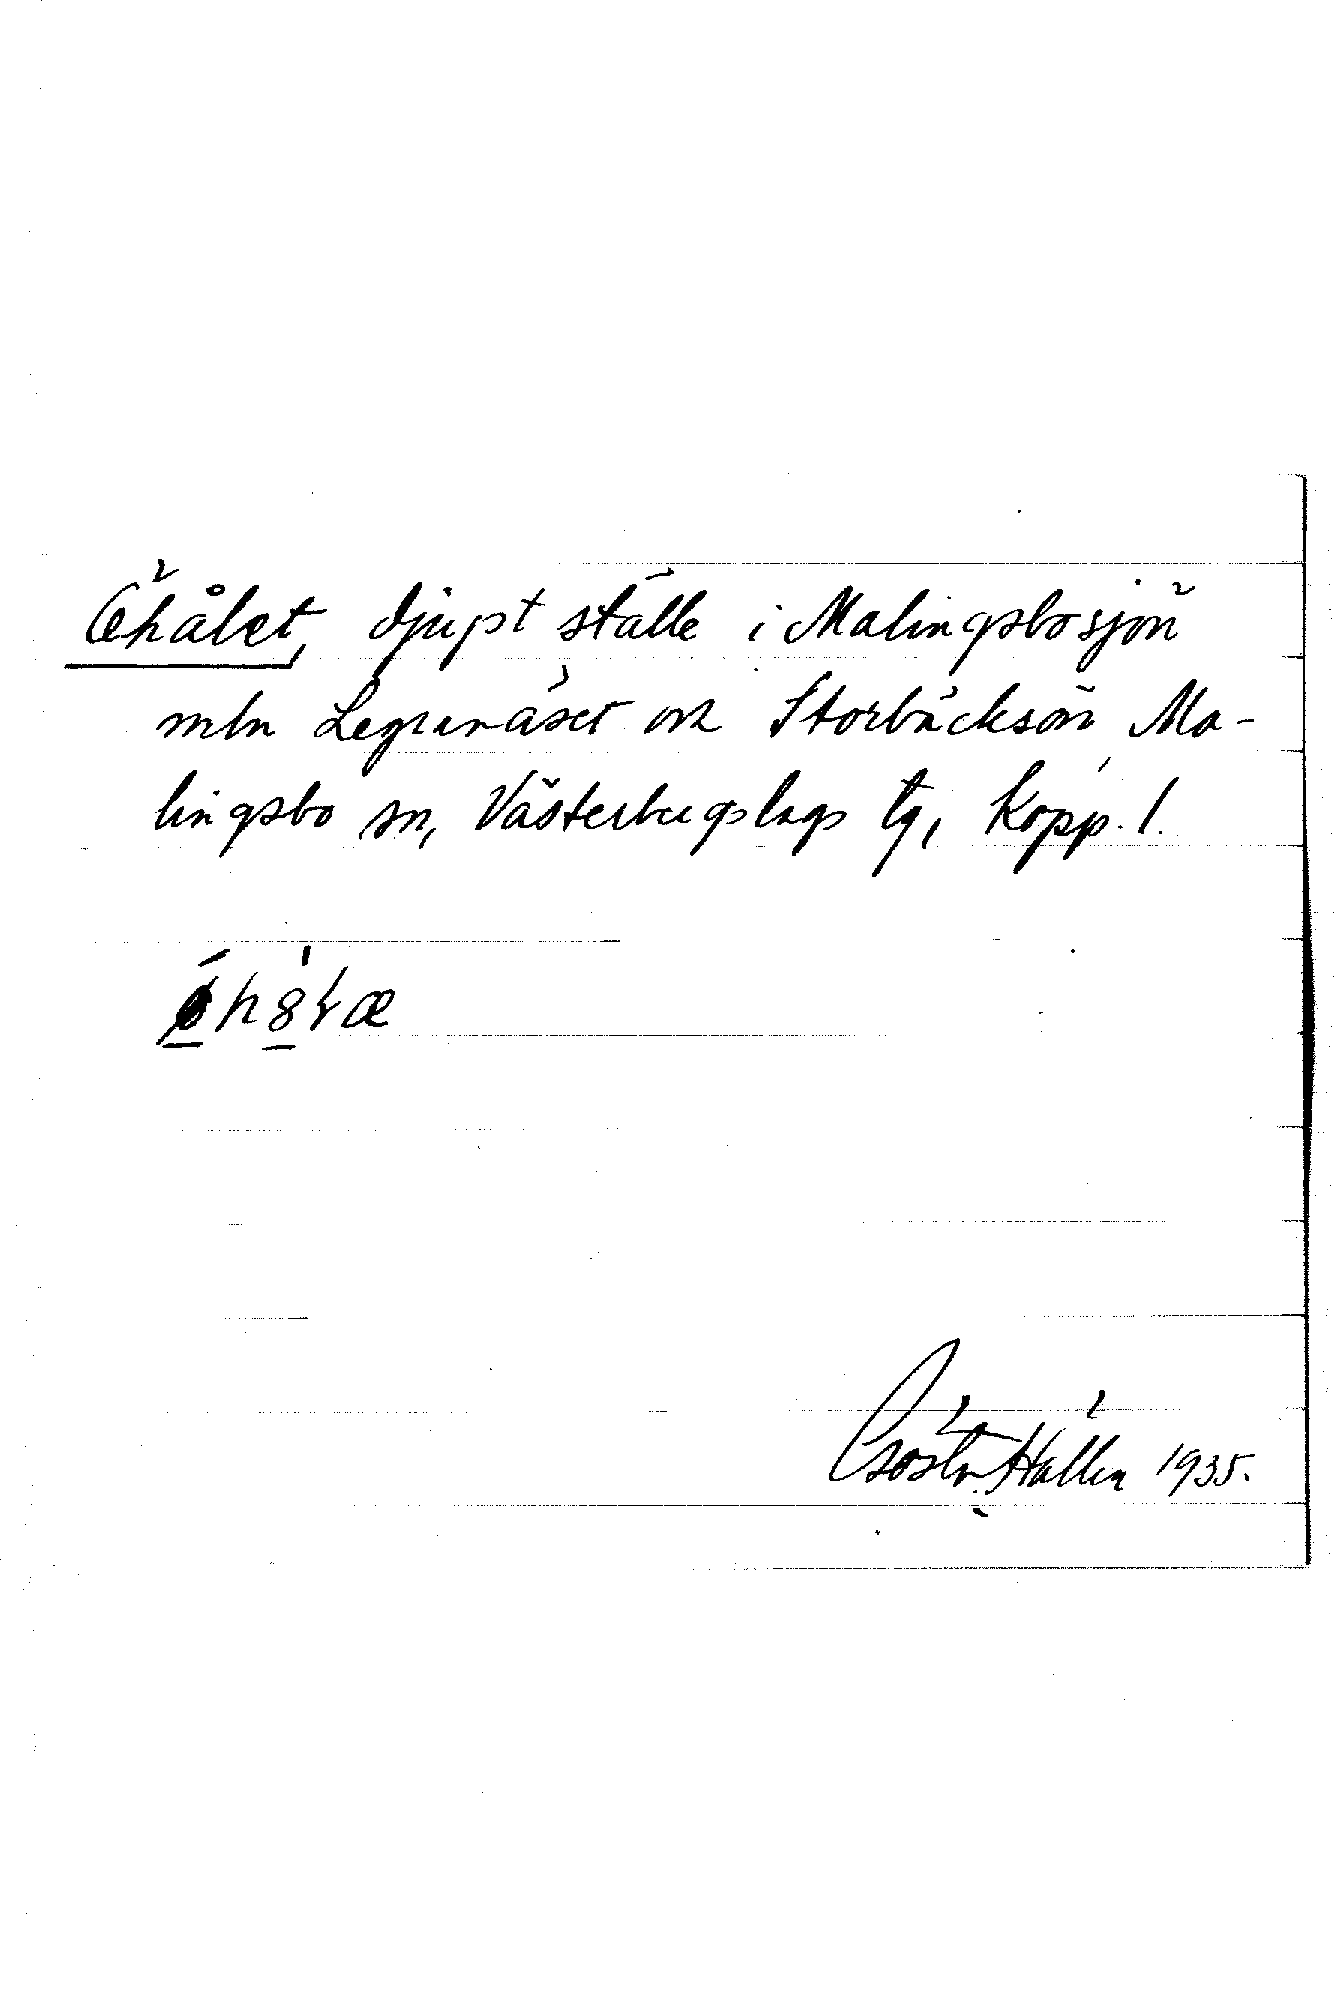 Öhålet, djupt ställe i Malingsbosjön
mln Legranäset och Storbäcksön, Ma-
lingsbo sn, Västerbergslags tg, Kopp. l.
Gösta Hallén 1935.